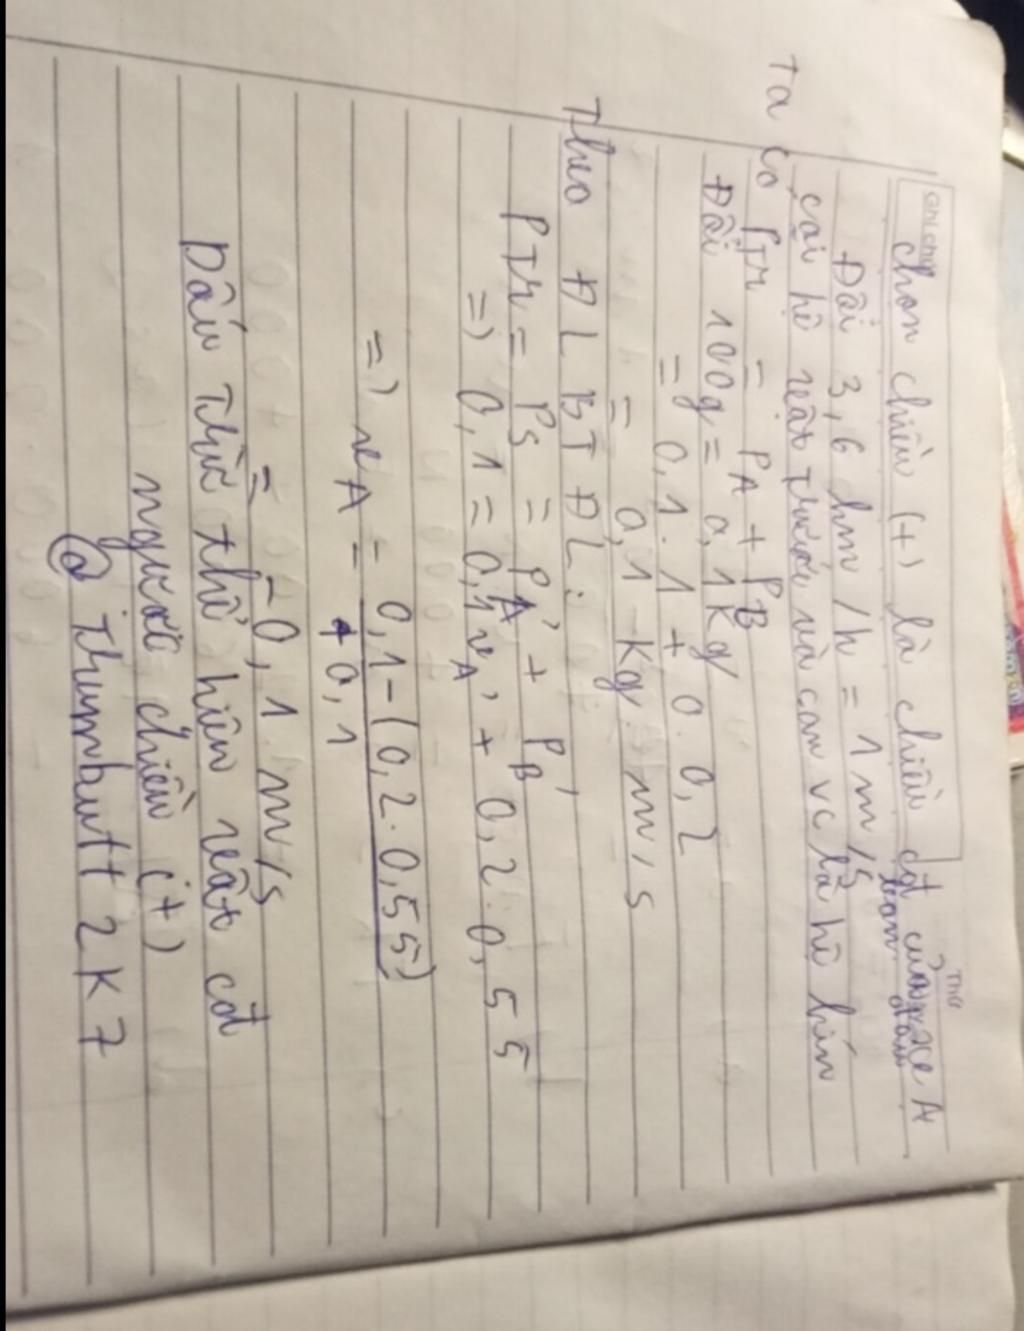 Ghi chú
Thứ
chọn chiều (+) là chiều cđ của xe A
ban đầu
Đổi 3,6 km/h = 1 m/s
coi hệ vật trước và sau vc là hệ kín
Ta có PTr = PA + PB
Đổi 100g = 0,1 Kg
= 0,1. 1 + 0. 0,2
= 0,1 Kg. m/s
Theo ĐL BT ĐL:
PTr = PS = PA' + PB'
=) 0,1 = 0,1vA' + 0,2. 0,55
=) vA = 0,1-(0,2. 0,55)
+ 0,1
= -0,1 m/s
Dấu trừ thể hiện vật cđ
ngược chiều (+)
@ thumbutt 2K7